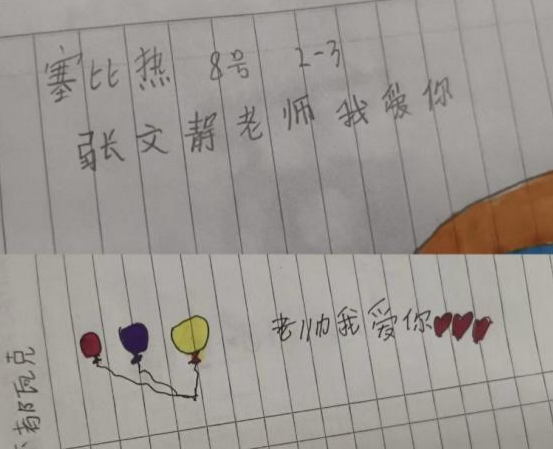 塞比热 8号 2-3
张文静老师我爱你
老帅我爱你
都瓦克